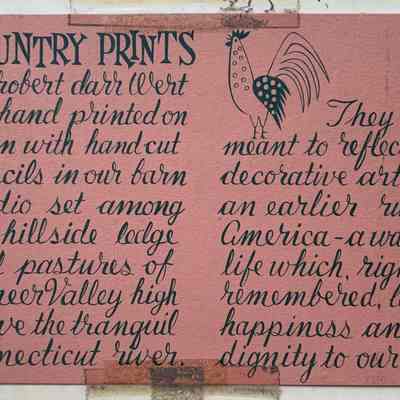 UNTRY PRINTS
robert darr Wert
hand printed on
n with hand cut
cils in our barn
dio set among
hillside ledge
pastures of
neer Valley high
ve the tranquil
necticut river.
They
meant to reflec
decorative art
an earlier ru
America-a wa
life which, righ
remembered, l
happiness an
dignity to our